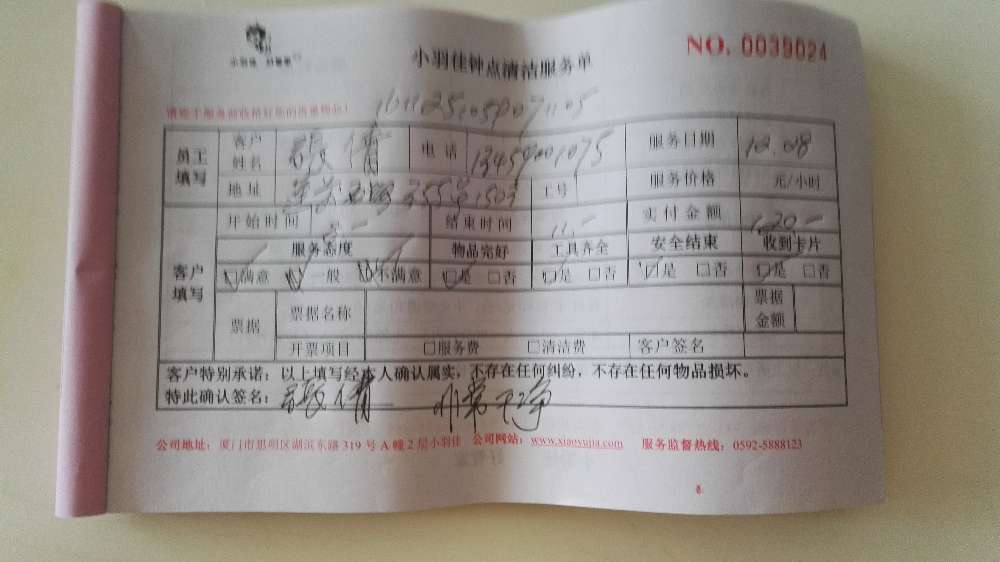 小羽佳 好管家
小羽佳钟点清洁服务单
NO. 0039024
员工填写 客户姓名 張倩 电话 服务日期 12.08
地址 工号 服务价格 元/小时
客户填写 开始时间 结束时间 11.- 实付金额 120-
服务态度 物品完好 工具齐全 安全结束 收到卡片
□满意 □一般 □不满意 □是 □否 □是 □否 □是 □否 □是 □否
票据 票据名称 票据金额
开票项目 □服务费 □清洁费 客户签名
客户特别承诺：以上填写经本人确认属实，不存在任何纠纷，不存在任何物品损坏。
特此确认签名：張倩 非常干净
公司地址：厦门市思明区湖滨东路 319 号 A 幢 2 层小羽佳 公司网站：www.xiaoyujia.com 服务监督热线：0592-5888123